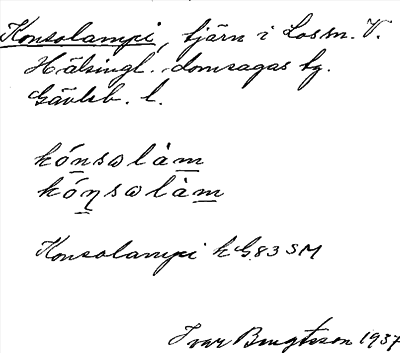 Konsolampi, tjärn i Los sn. V.
Hälsingl. domsagas tg.
Gävleb. l.
kónsalàm
kóṇsalàm
Konsolampi k G.83 SM
Ivar Bengtsson 1937